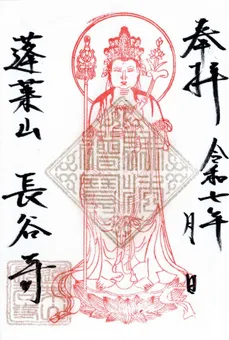 奉拝
令和七年 月 日
蓬莱山 長谷寺